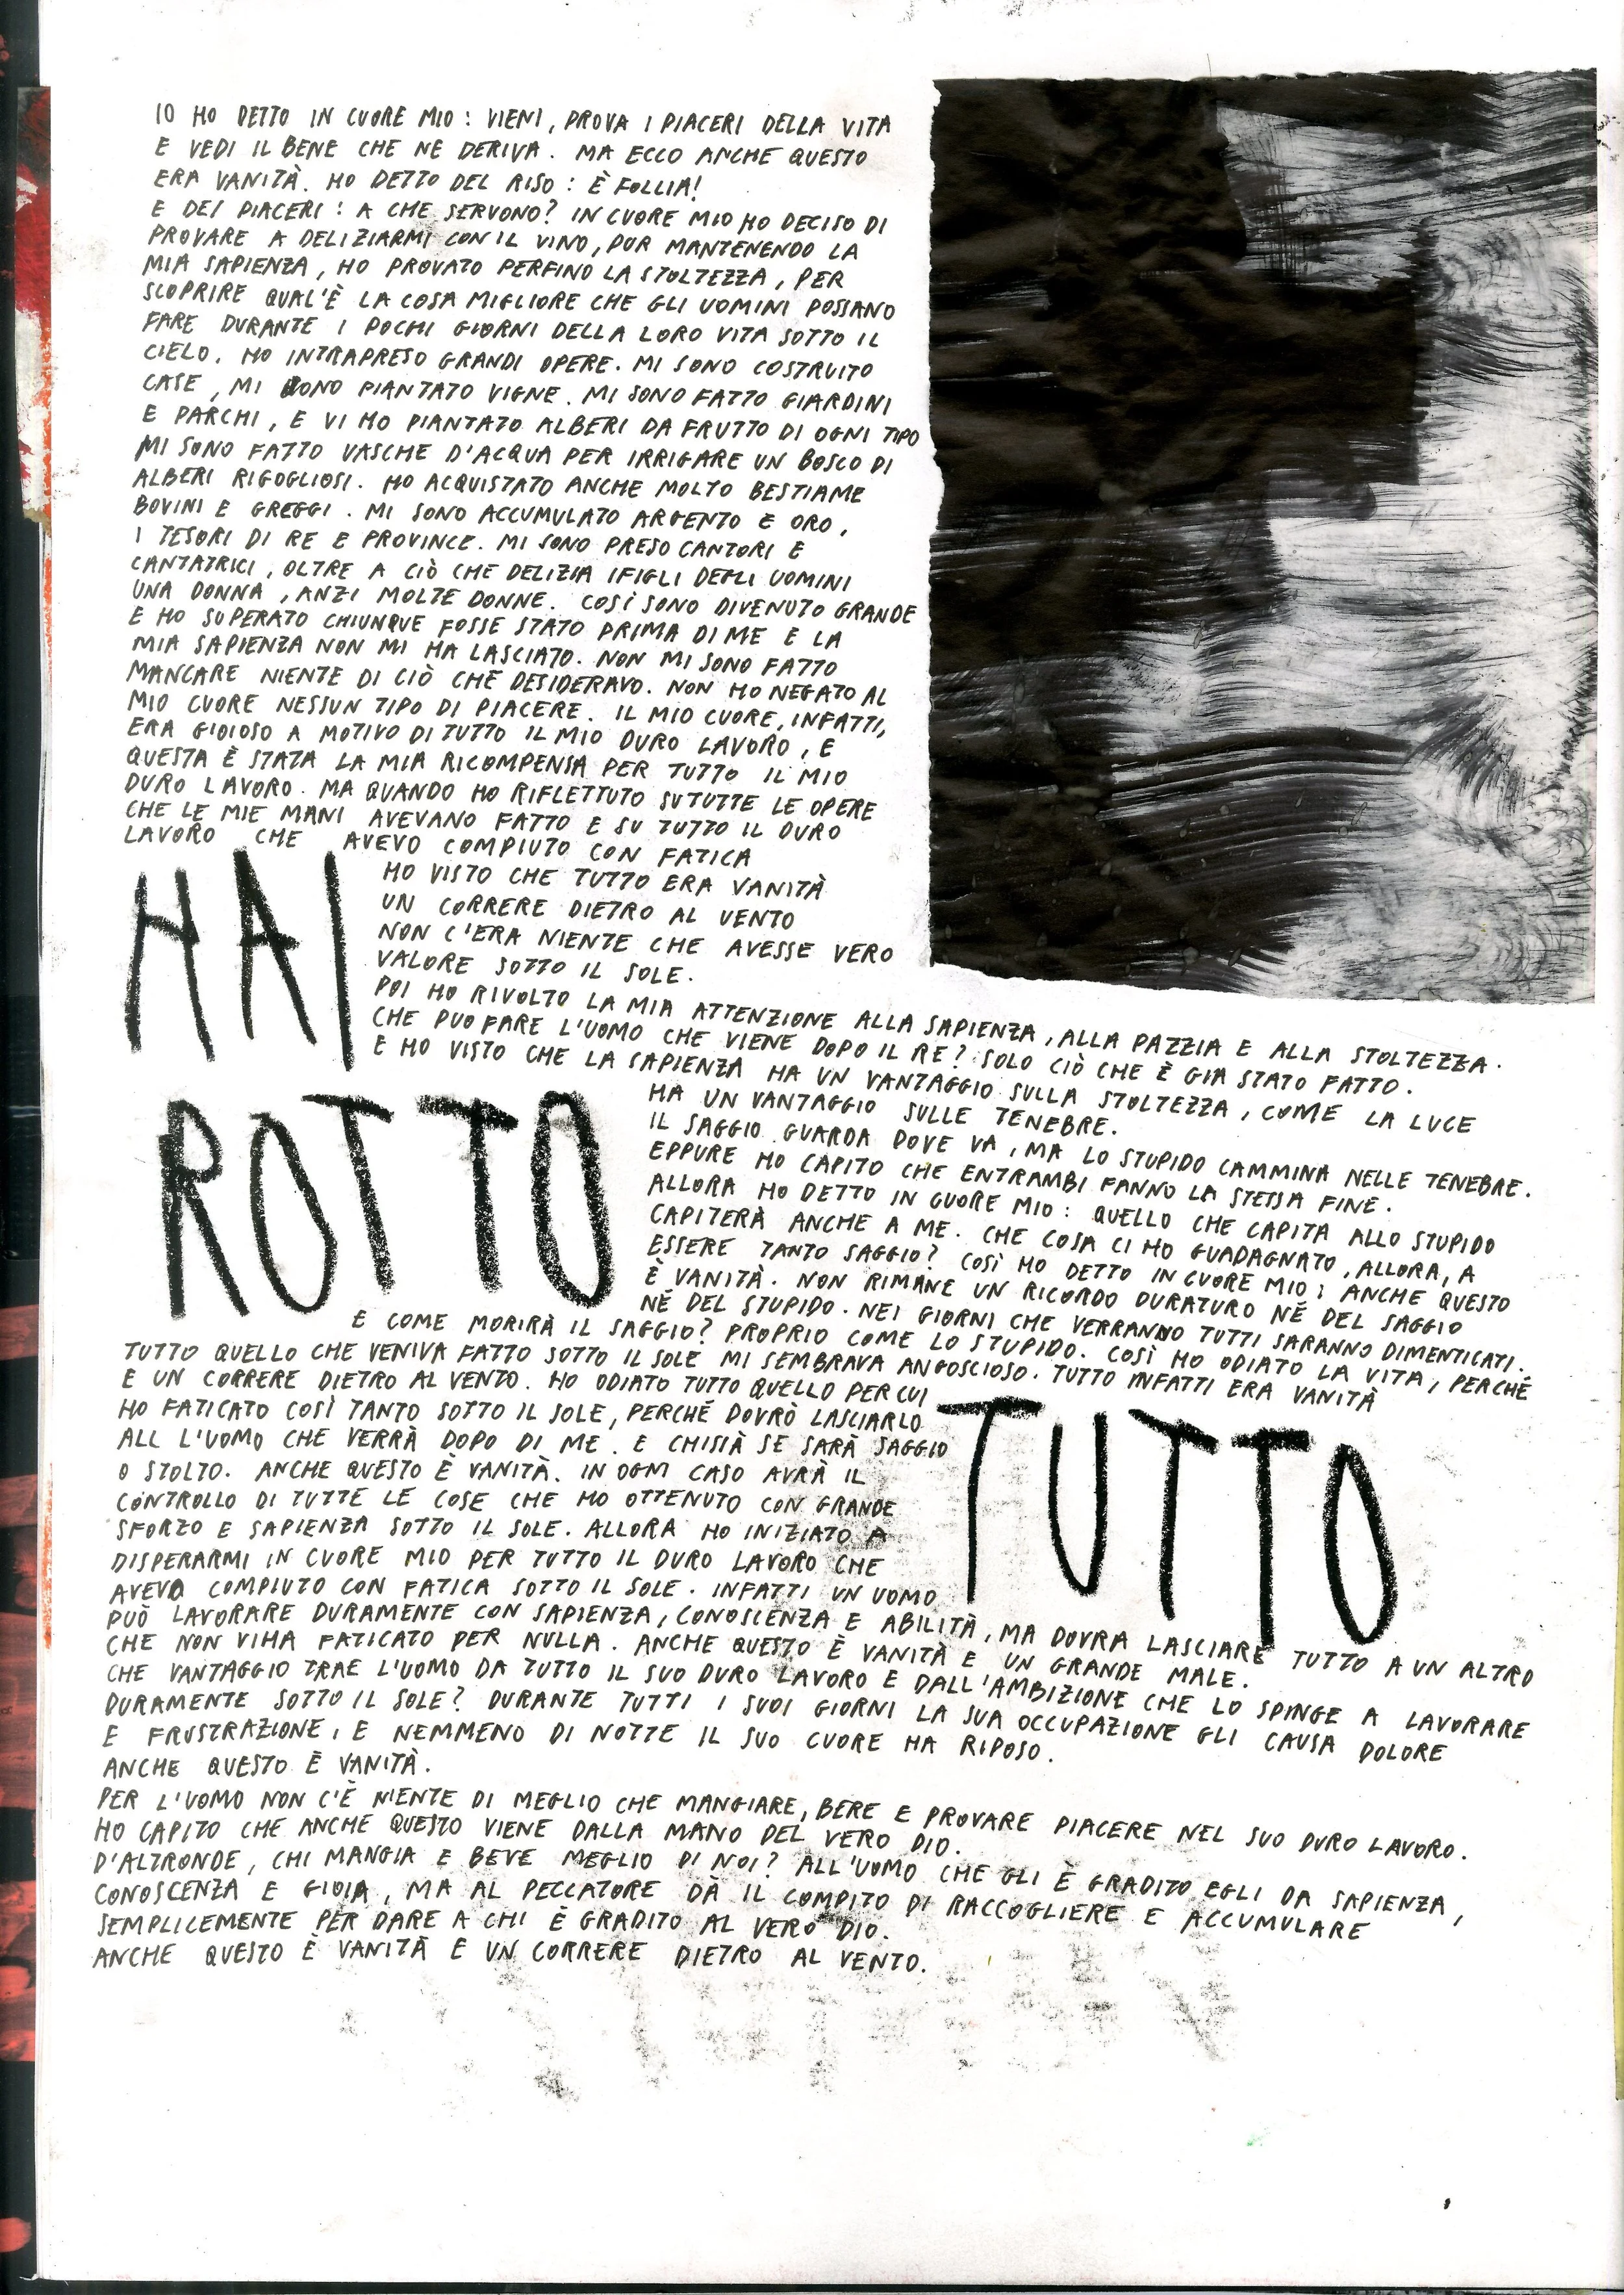 IO HO DETTO IN CUORE MIO : VIENI, PROVA I PIACERI DELLA VITA
E VEDI IL BENE CHE NE DERIVA. MA ECCO ANCHE QUESTO
ERA VANITÀ. HO DETTO DEL RISO : È FOLLIA!
E DEI PIACERI : A CHE SERVONO? IN CUORE MIO HO DECISO DI
PROVARE A DELIZIARMI CON IL VINO, PUR MANTENENDO LA
MIA SAPIENZA, HO PROVATO PERFINO LA STOLTEZZA, PER
SCOPRIRE QUAL'È LA COSA MIGLIORE CHE GLI UOMINI POSSANO
FARE DURANTE I POCHI GIORNI DELLA LORO VITA SOTTO IL
CIELO. HO INTRAPRESO GRANDI OPERE. MI SONO COSTRUITO
CASE, MI SONO PIANTATO VIGNE. MI SONO FATTO GIARDINI
E PARCHI, E VI HO PIANTATO ALBERI DA FRUTTO DI OGNI TIPO
MI SONO FATTO VASCHE D'ACQUA PER IRRIGARE UN BOSCO DI
ALBERI RIGOGLIOSI. HO ACQUISTATO ANCHE MOLTO BESTIAME
BOVINI E GREGGI. MI SONO ACCUMULATO ARGENTO E ORO,
I TESORI DI RE E PROVINCE. MI SONO PRESO CANTORI E
CANTATRICI, OLTRE A CIÒ CHE DELIZIA I FIGLI DEGLI UOMINI
UNA DONNA, ANZI MOLTE DONNE. COSÌ SONO DIVENUTO GRANDE
E HO SUPERATO CHIUNQUE FOSSE STATO PRIMA DI ME E LA
MIA SAPIENZA NON MI HA LASCIATO. NON MI SONO FATTO
MANCARE NIENTE DI CIÒ CHE DESIDERAVO. NON HO NEGATO AL
MIO CUORE NESSUN TIPO DI PIACERE. IL MIO CUORE, INFATTI,
ERA GIOIOSO A MOTIVO DI TUTTO IL MIO DURO LAVORO, E
QUESTA È STATA LA MIA RICOMPENSA PER TUTTO IL MIO
DURO LAVORO. MA QUANDO HO RIFLETTUTO SU TUTTE LE OPERE
CHE LE MIE MANI AVEVANO FATTO E SU TUTTO IL DURO
LAVORO CHE AVEVO COMPIUTO CON FATICA
HO VISTO CHE TUTTO ERA VANITÀ
UN CORRERE DIETRO AL VENTO
NON C'ERA NIENTE CHE AVESSE VERO
VALORE SOTTO IL SOLE.
HAI
POI HO RIVOLTO LA MIA ATTENZIONE ALLA SAPIENZA, ALLA PAZZIA E ALLA STOLTEZZA.
CHE PUO FARE L'UOMO CHE VIENE DOPO IL RE? SOLO CIÒ CHE È GIA STATO FATTO.
E HO VISTO CHE LA SAPIENZA HA UN VANTAGGIO SULLA STOLTEZZA, COME LA LUCE
HA UN VANTAGGIO SULLE TENEBRE.
IL SAGGIO GUARDA DOVE VA, MA LO STUPIDO CAMMINA NELLE TENEBRE.
EPPURE HO CAPITO CHE ENTRAMBI FANNO LA STESSA FINE.
ALLORA HO DETTO IN CUORE MIO : QUELLO CHE CAPITA ALLO STUPIDO
CAPITERÀ ANCHE A ME. CHE COSA CI HO GUADAGNATO, ALLORA, A
ESSERE TANTO SAGGIO? COSÌ HO DETTO IN CUORE MIO : ANCHE QUESTO
È VANITÀ. NON RIMANE UN RICORDO DURATURO NÉ DEL SAGGIO
NÉ DEL STUPIDO. NEI GIORNI CHE VERRANNO TUTTI SARANNO DIMENTICATI.
ROTTO
E COME MORIRÀ IL SAGGIO? PROPRIO COME LO STUPIDO. COSÌ HO ODIATO LA VITA, PERCHÉ
TUTTO QUELLO CHE VENIVA FATTO SOTTO IL SOLE MI SEMBRAVA ANGOSCIOSO. TUTTO INFATTI ERA VANITÀ
E UN CORRERE DIETRO AL VENTO. HO ODIATO TUTTO QUELLO PER CUI
HO FATICATO COSÌ TANTO SOTTO IL SOLE, PERCHÉ DOVRÒ LASCIARLO
ALL L'UOMO CHE VERRÀ DOPO DI ME. E CHISSÀ SE SARÀ SAGGIO
O STOLTO. ANCHE QUESTO È VANITÀ. IN OGNI CASO AVRÀ IL
CONTROLLO DI TUTTE LE COSE CHE HO OTTENUTO CON GRANDE
SFORZO E SAPIENZA SOTTO IL SOLE. ALLORA HO INIZIATO A
DISPERARMI IN CUORE MIO PER TUTTO IL DURO LAVORO CHE
AVEVO COMPIUTO CON FATICA SOTTO IL SOLE. INFATTI UN UOMO
TUTTO
PUÒ LAVORARE DURAMENTE CON SAPIENZA, CONOSCENZA E ABILITÀ, MA DOVRA LASCIARE TUTTO A UN ALTRO
CHE NON VI HA FATICATO PER NULLA. ANCHE QUESTO È VANITÀ E UN GRANDE MALE.
CHE VANTAGGIO TRAE L'UOMO DA TUTTO IL SUO DURO LAVORO E DALL'AMBIZIONE CHE LO SPINGE A LAVORARE
DURAMENTE SOTTO IL SOLE? DURANTE TUTTI I SUOI GIORNI LA SUA OCCUPAZIONE GLI CAUSA DOLORE
E FRUSTRAZIONE, E NEMMENO DI NOTTE IL SUO CUORE HA RIPOSO.
ANCHE QUESTO È VANITÀ.
PER L'UOMO NON C'È NIENTE DI MEGLIO CHE MANGIARE, BERE E PROVARE PIACERE NEL SUO DURO LAVORO.
HO CAPITO CHE ANCHE QUESTO VIENE DALLA MANO DEL VERO DIO.
D'ALTRONDE, CHI MANGIA E BEVE MEGLIO DI NOI? ALL'UOMO CHE GLI È GRADITO EGLI DA SAPIENZA,
CONOSCENZA E GIOIA, MA AL PECCATORE DÀ IL COMPITO DI RACCOGLIERE E ACCUMULARE
SEMPLICEMENTE PER DARE A CHI È GRADITO AL VERO DIO.
ANCHE QUESTO È VANITÀ E UN CORRERE DIETRO AL VENTO.